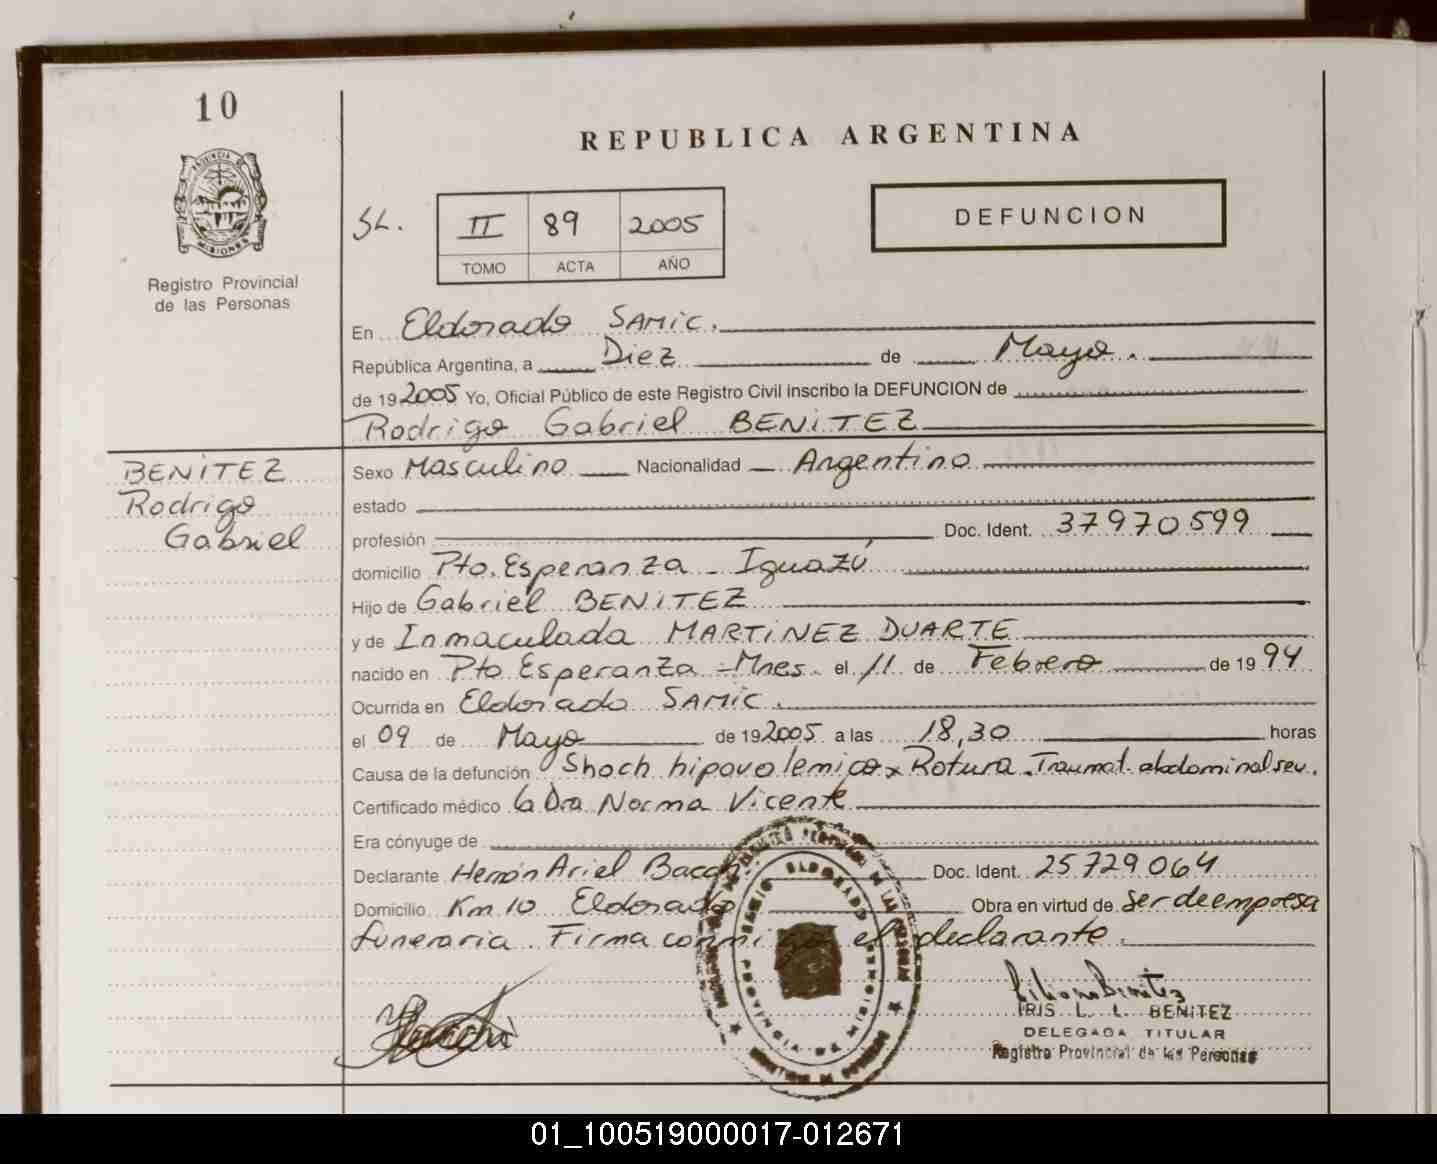 10
REPUBLICA ARGENTINA
PROVINCIA DE
MISIONES
Registro Provincial
de las Personas
SL.
II 89 2005
TOMO ACTA AÑO
DEFUNCION
En Eldorado SAMIC.
República Argentina, a Diez de Mayo.
de 19 2005 Yo, Oficial Público de este Registro Civil inscribo la DEFUNCION de
Rodrigo Gabriel BENITEZ
BENITEZ
Rodrigo
Gabriel
Sexo Masculino Nacionalidad Argentino
estado
profesión Doc. Ident. 37970599
domicilio Pto. Esperanza - Iguazú
Hijo de Gabriel BENITEZ
y de Inmaculada MARTINEZ DUARTE
nacido en Pto Esperanza - Mnes. el 11 de Febrero de 19 94
Ocurrida en Eldorado SAMIC.
el 09 de Mayo de 19 2005 a las 18,30 horas
Causa de la defunción Shoch hipovolemico x Rotura. Traumat. abdominal sev.
Certificado médico la Dra Norma Vicente
Era cónyuge de
Declarante Hernán Ariel Bacchi Doc. Ident. 25729064
Domicilio Km 10 Eldorado Obra en virtud de ser de empresa
funeraria. Firma conmigo el declarante.
IRIS L. L. BENITEZ
DELEGADA TITULAR
Registro Provincial de las Personas
01_100519000017-012671